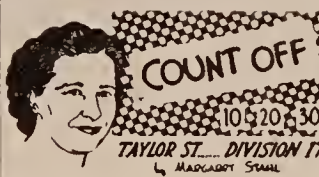 COUNT OFF
10 20 30
TAYLOR ST..... DIVISION
by MARGARET